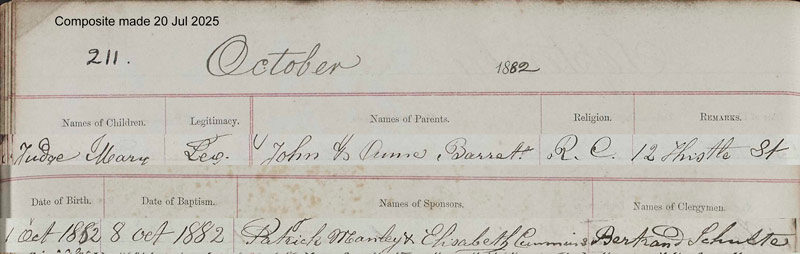 Composite made 20 Jul 2025
211. October 1882
Names of Children. Legitimacy. Names of Parents. Religion. Remarks.
Judge Mary Leg. John & Anne Barrett R. C. 12 Thistle St
Date of Birth. Date of Baptism. Names of Sponsors. Names of Clergymen.
1 Oct 1882 8 Oct 1882 Patrick Manley & Elisabeth Cummins Bertrand Schulte